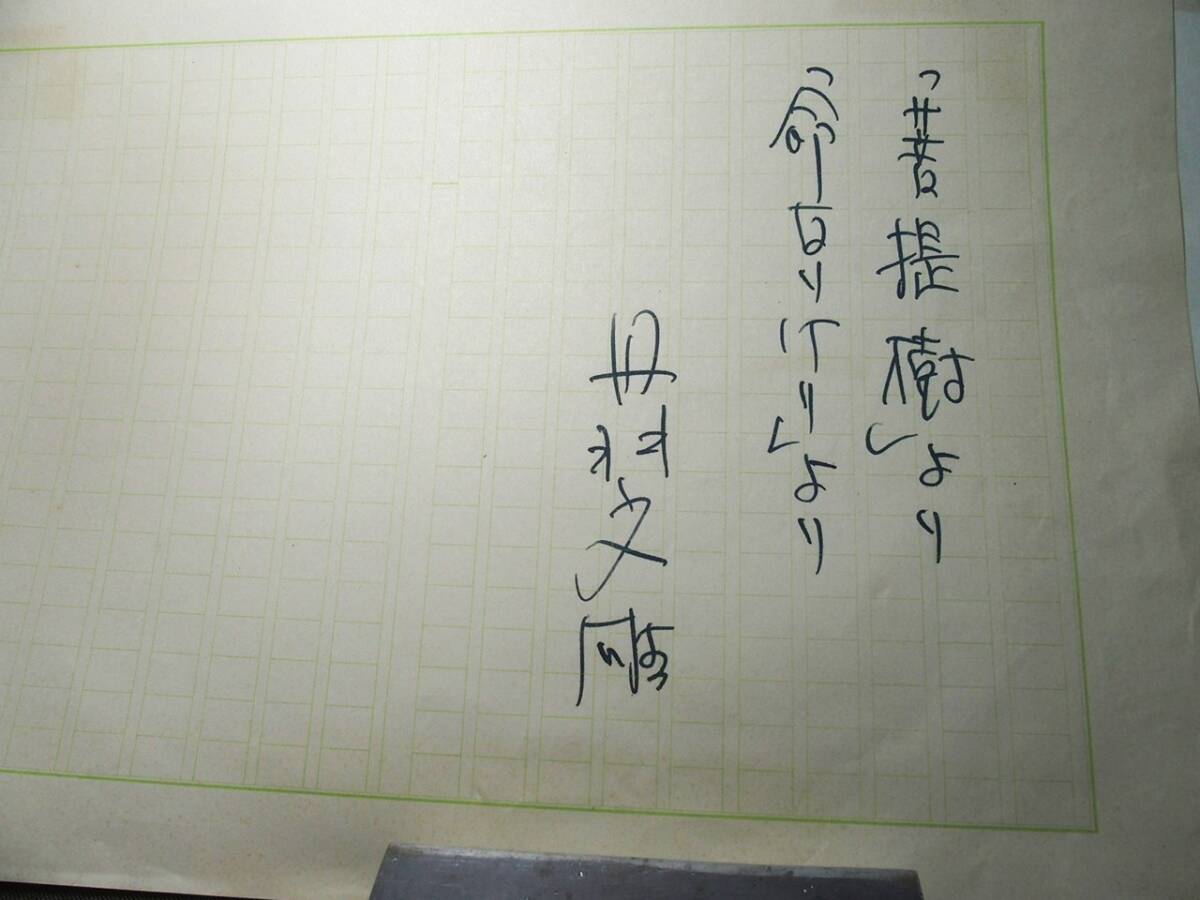 「菩提樹」より
「命なりけり」より
丹羽文雄